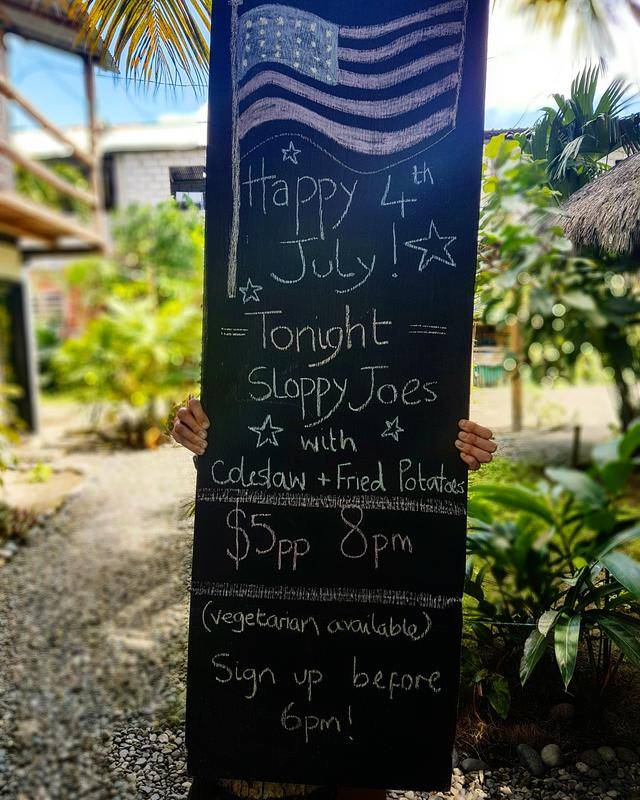 Happy 4th
July!
= Tonight =
Sloppy Joes
with
Coleslaw + Fried Potatoes
$5pp 8pm
(vegetarian available)
Sign up before
6pm!